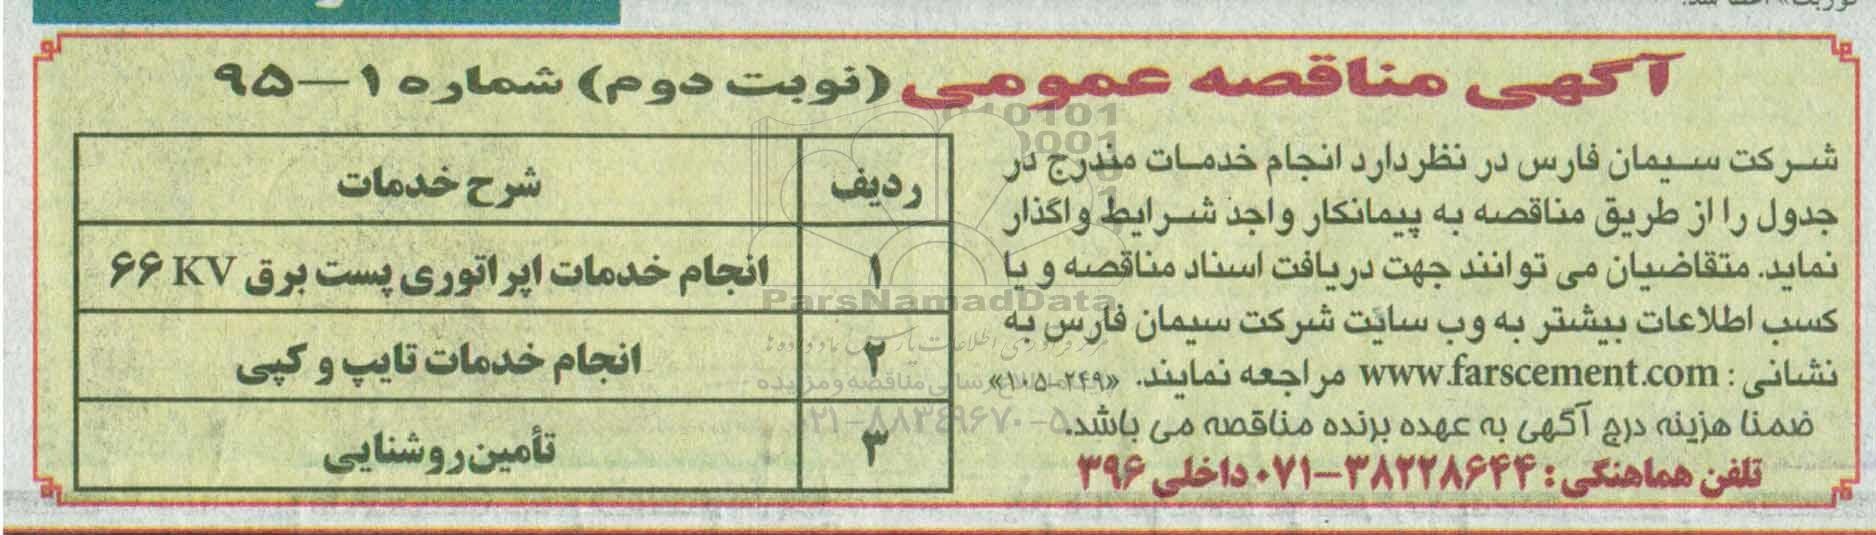 آگهی مناقصه عمومی (نوبت دوم) شماره ۱–۹۵
شرکت سیمان فارس در نظردارد انجام خدمات مندرج در
جدول را از طریق مناقصه به پیمانکار واجد شرایط واگذار
نماید. متقاضیان می توانند جهت دریافت اسناد مناقصه و یا
کسب اطلاعات بیشتر به وب سایت شرکت سیمان فارس به
نشانی : www.farscement.com مراجعه نمایند.
ضمنا هزینه درج آگهی به عهده برنده مناقصه می باشد.
تلفن هماهنگی : ۳۸۲۲۸۶۴۴–۰۷۱ داخلی ۳۹۶
ردیف شرح خدمات
۱ انجام خدمات اپراتوری پست برق ۶۶ KV
۲ انجام خدمات تایپ و کپی
۳ تأمین روشنایی
ParsNamadData
۰۲۱–۸۸۳۴۹۶۷۰–۵